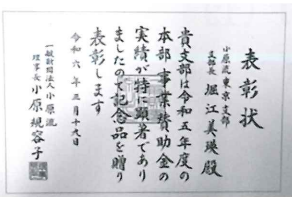 表彰状
小原流東京支部
支部長 堀江美瑛殿
貴支部は令和五年度の
本部事業賛助金の
実績が特に顕著であり
ましたので記念品を贈り
表彰します
令和六年三月十九日
一般財団法人小原流
理事長 小原規容子